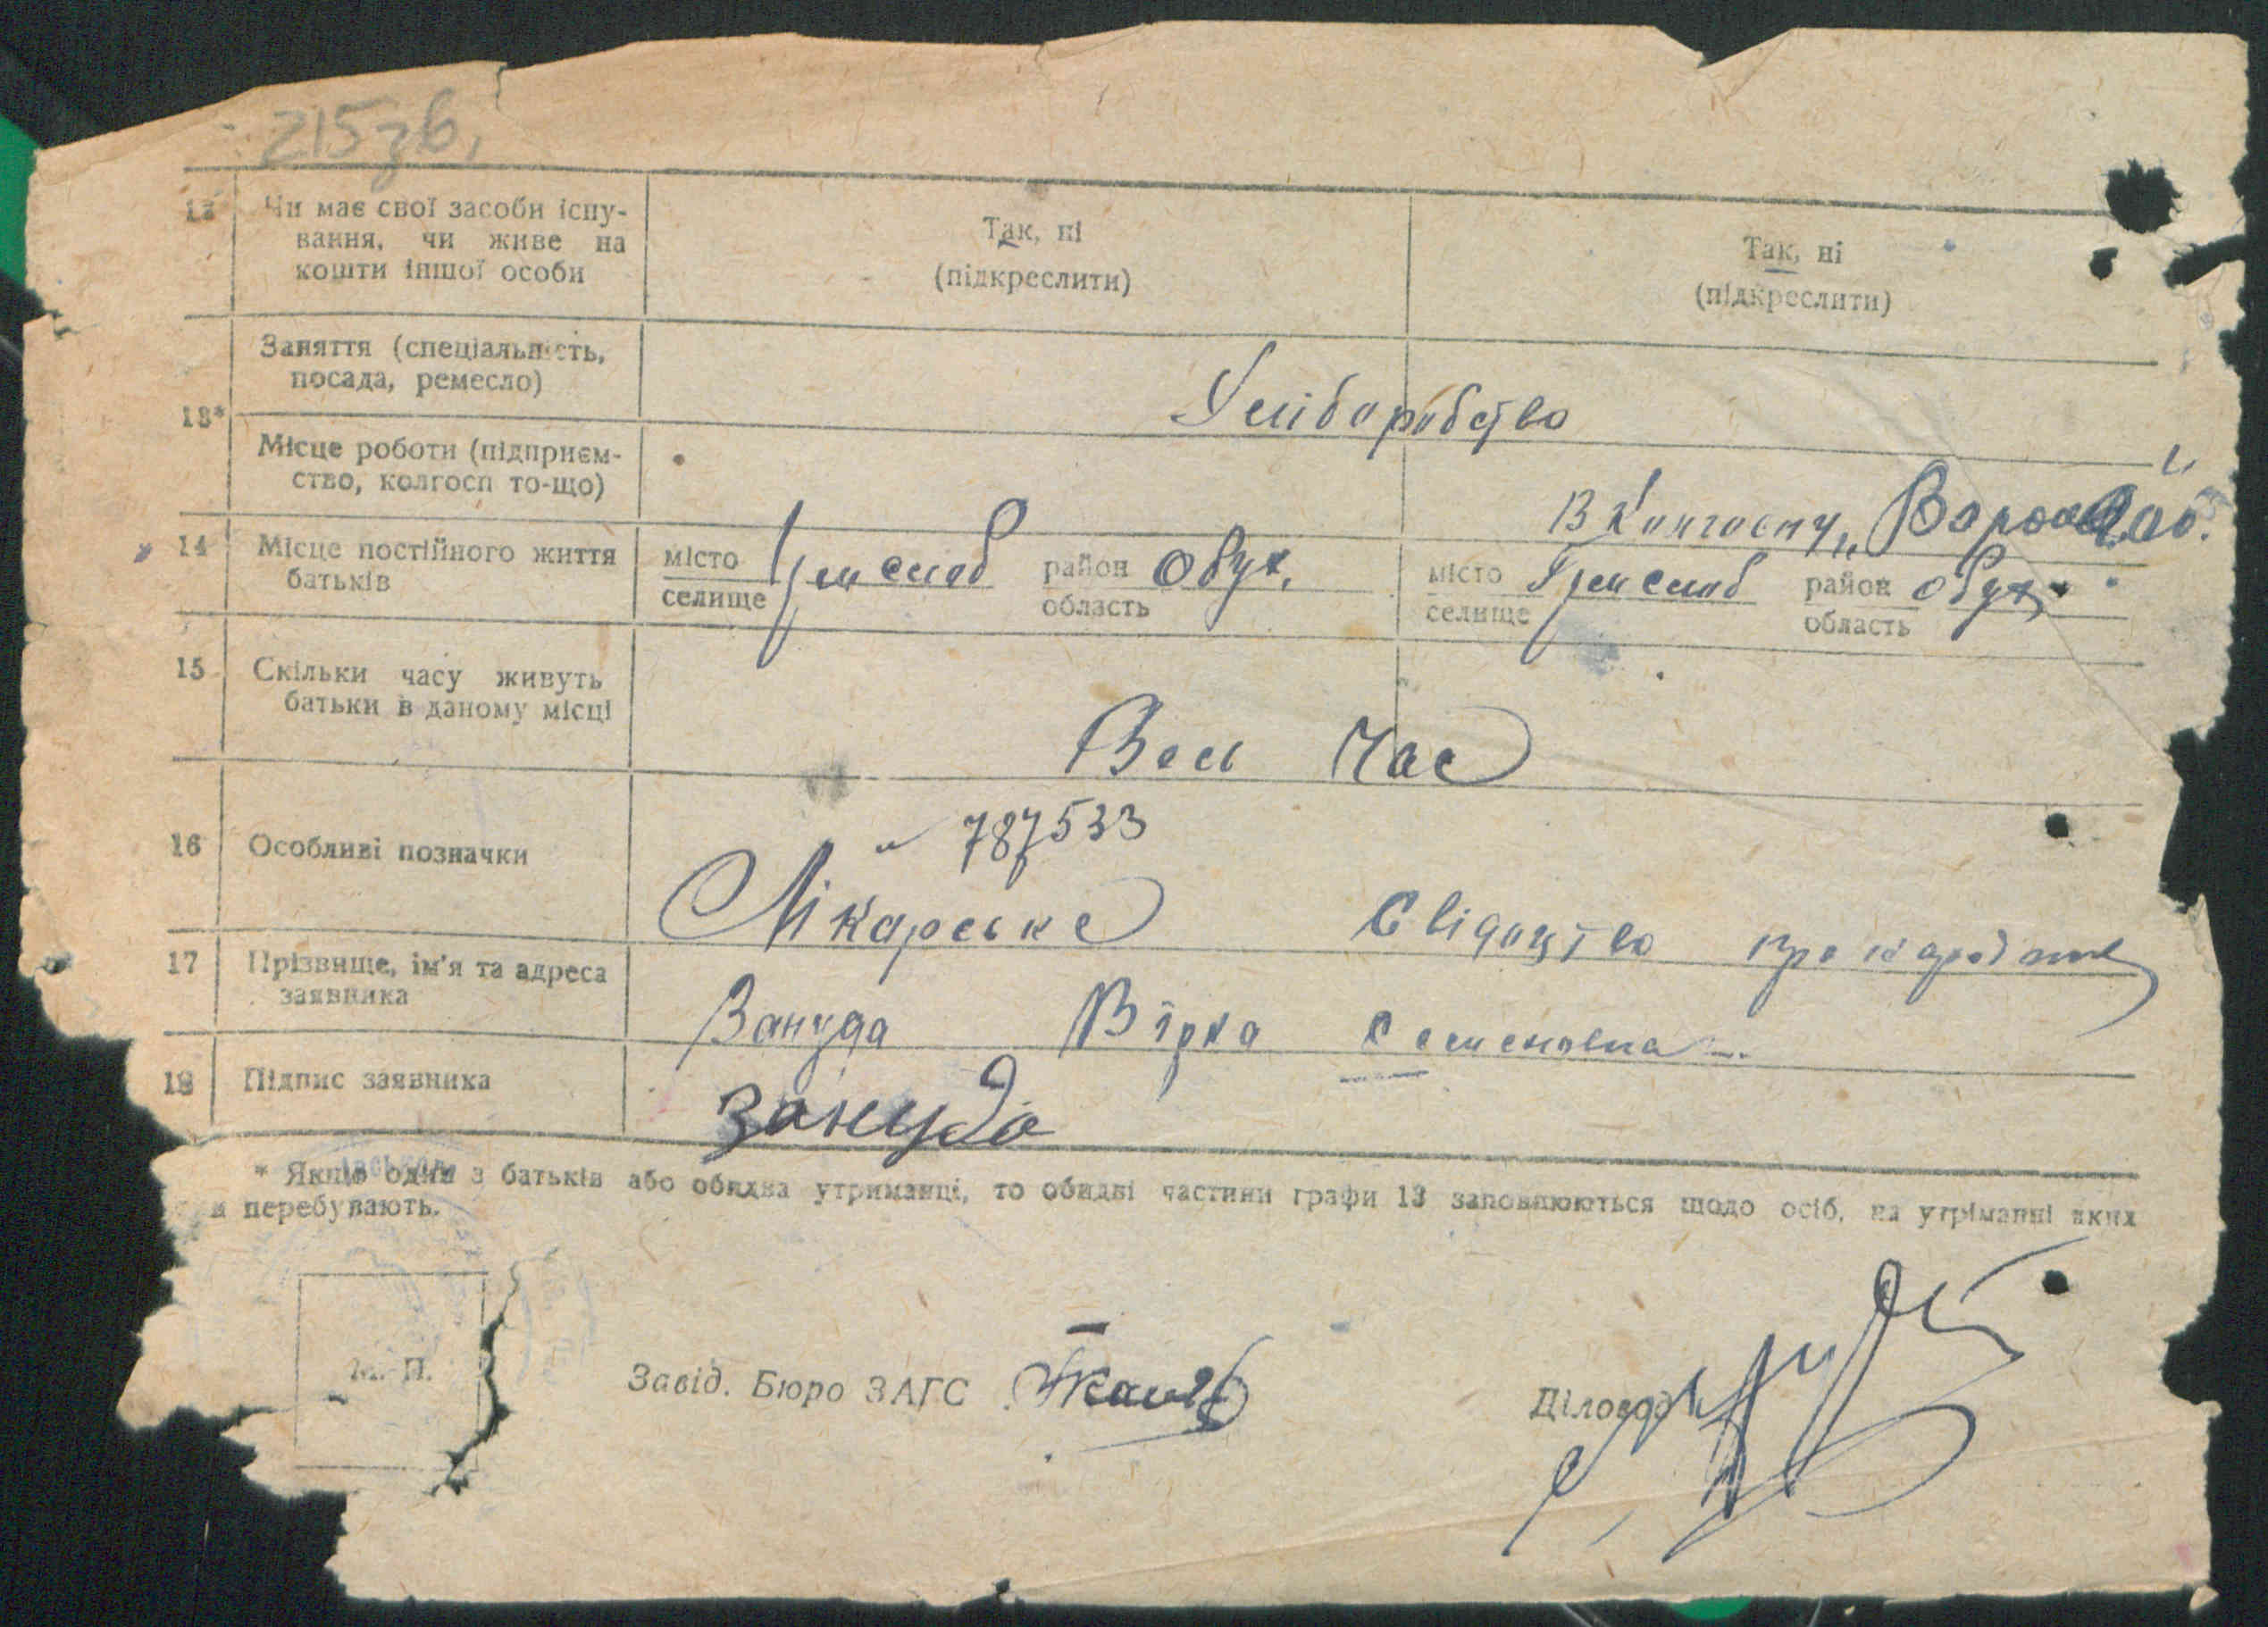 215зв.
12 Чи має свої засоби існу-
вання, чи живе на
кошти іншої особи
Так, ні
(підкреслити)
Так, ні
(підкреслити)
Заняття (спеціальність,
посада, ремесло)
13*
Місце роботи (підприєм-
ство, колгосп то-що)
В Колгоспу
14 Місце постійного життя
батьків
місто
селище
район Обух.
область
місто
селище
район Обух.
область
15 Скільки часу живуть
батьки в даному місці
Весь час
16 Особливі позначки
787533
Лікарське Свідоцтво про
17 Прізвище, ім'я та адреса
заявника
Зануда Вірка Семеновна
18 Підпис заявника
Зануда
* Якщо один з батьків або обидва утриманці, то обидві частини графи 13 заповнюються щодо осіб, на утриманні яких
перебувають.
М. П.
Завід. Бюро ЗАГС
Діловод